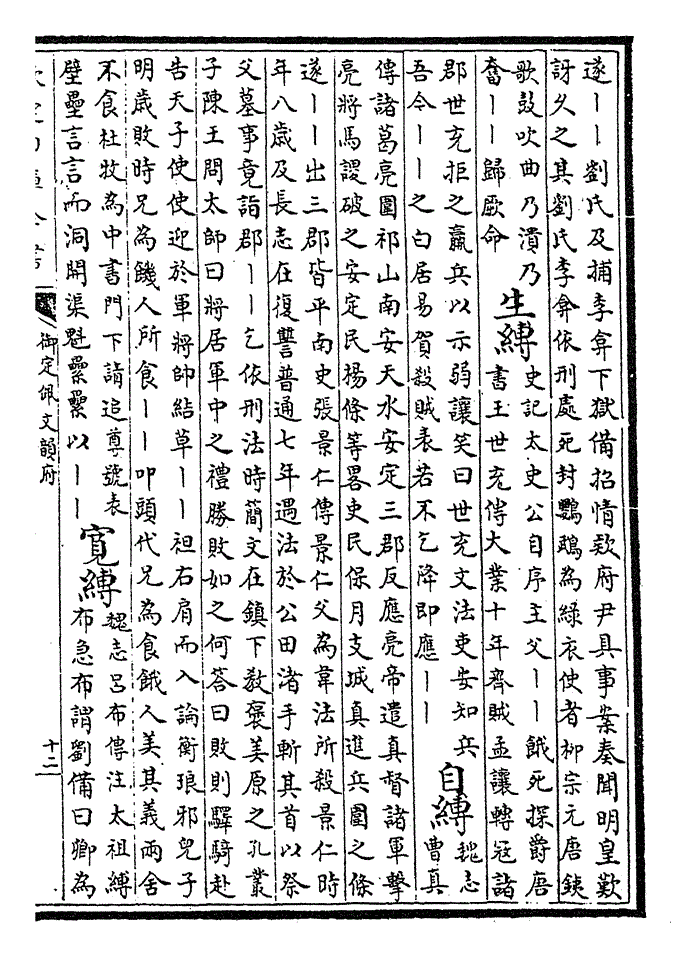 遂丨丨劉氏及捕李弇下獄備招情欵府尹具事案奏聞明皇歎
訝久之其劉氏李弇依刑處死封鸚鵡為緑衣使者柳宗元唐鐃
歌鼓吹曲乃潰乃
奮丨丨歸厥命
生縛
史記太史公自序主父丨丨餓死探爵唐
書王世充傳大業十年齊賊孟讓轉冦詣
郡世充拒之羸兵以示弱讓笑曰世充文法吏安知兵
吾今丨丨之白居易賀殺賊表若不乞降即應丨丨
自縛
魏志
曹真
傳諸葛亮圍祁山南安天水安定三郡反應亮帝遣真督諸軍擊
亮將馬謖破之安定民楊條等畧吏民保月支城真進兵圍之條
遂丨丨出三郡皆平南史張景仁傳景仁父為韋法所殺景仁時
年八歲及長志在復讐普通七年遇法於公田渚手斬其首以祭
父墓事竟詣郡丨丨乞依刑法時簡文在鎮下教褒美原之孔叢
子陳王問太師曰將居軍中之禮勝敗如之何答曰敗則驛騎赴
告天子使使迎於軍將帥結草丨丨袒右肩而入論衡琅邪兒子
明歲敗時兄為饑人所食丨丨叩頭代兄為食餓人美其義兩舍
不食杜牧為中書門下請追尊號表
壁壘言言而洞開渠魁纍纍以丨丨
寛縛
魏志呂布傳注太祖縛
布急布謂劉備曰卿為
御定佩文韻府
十二